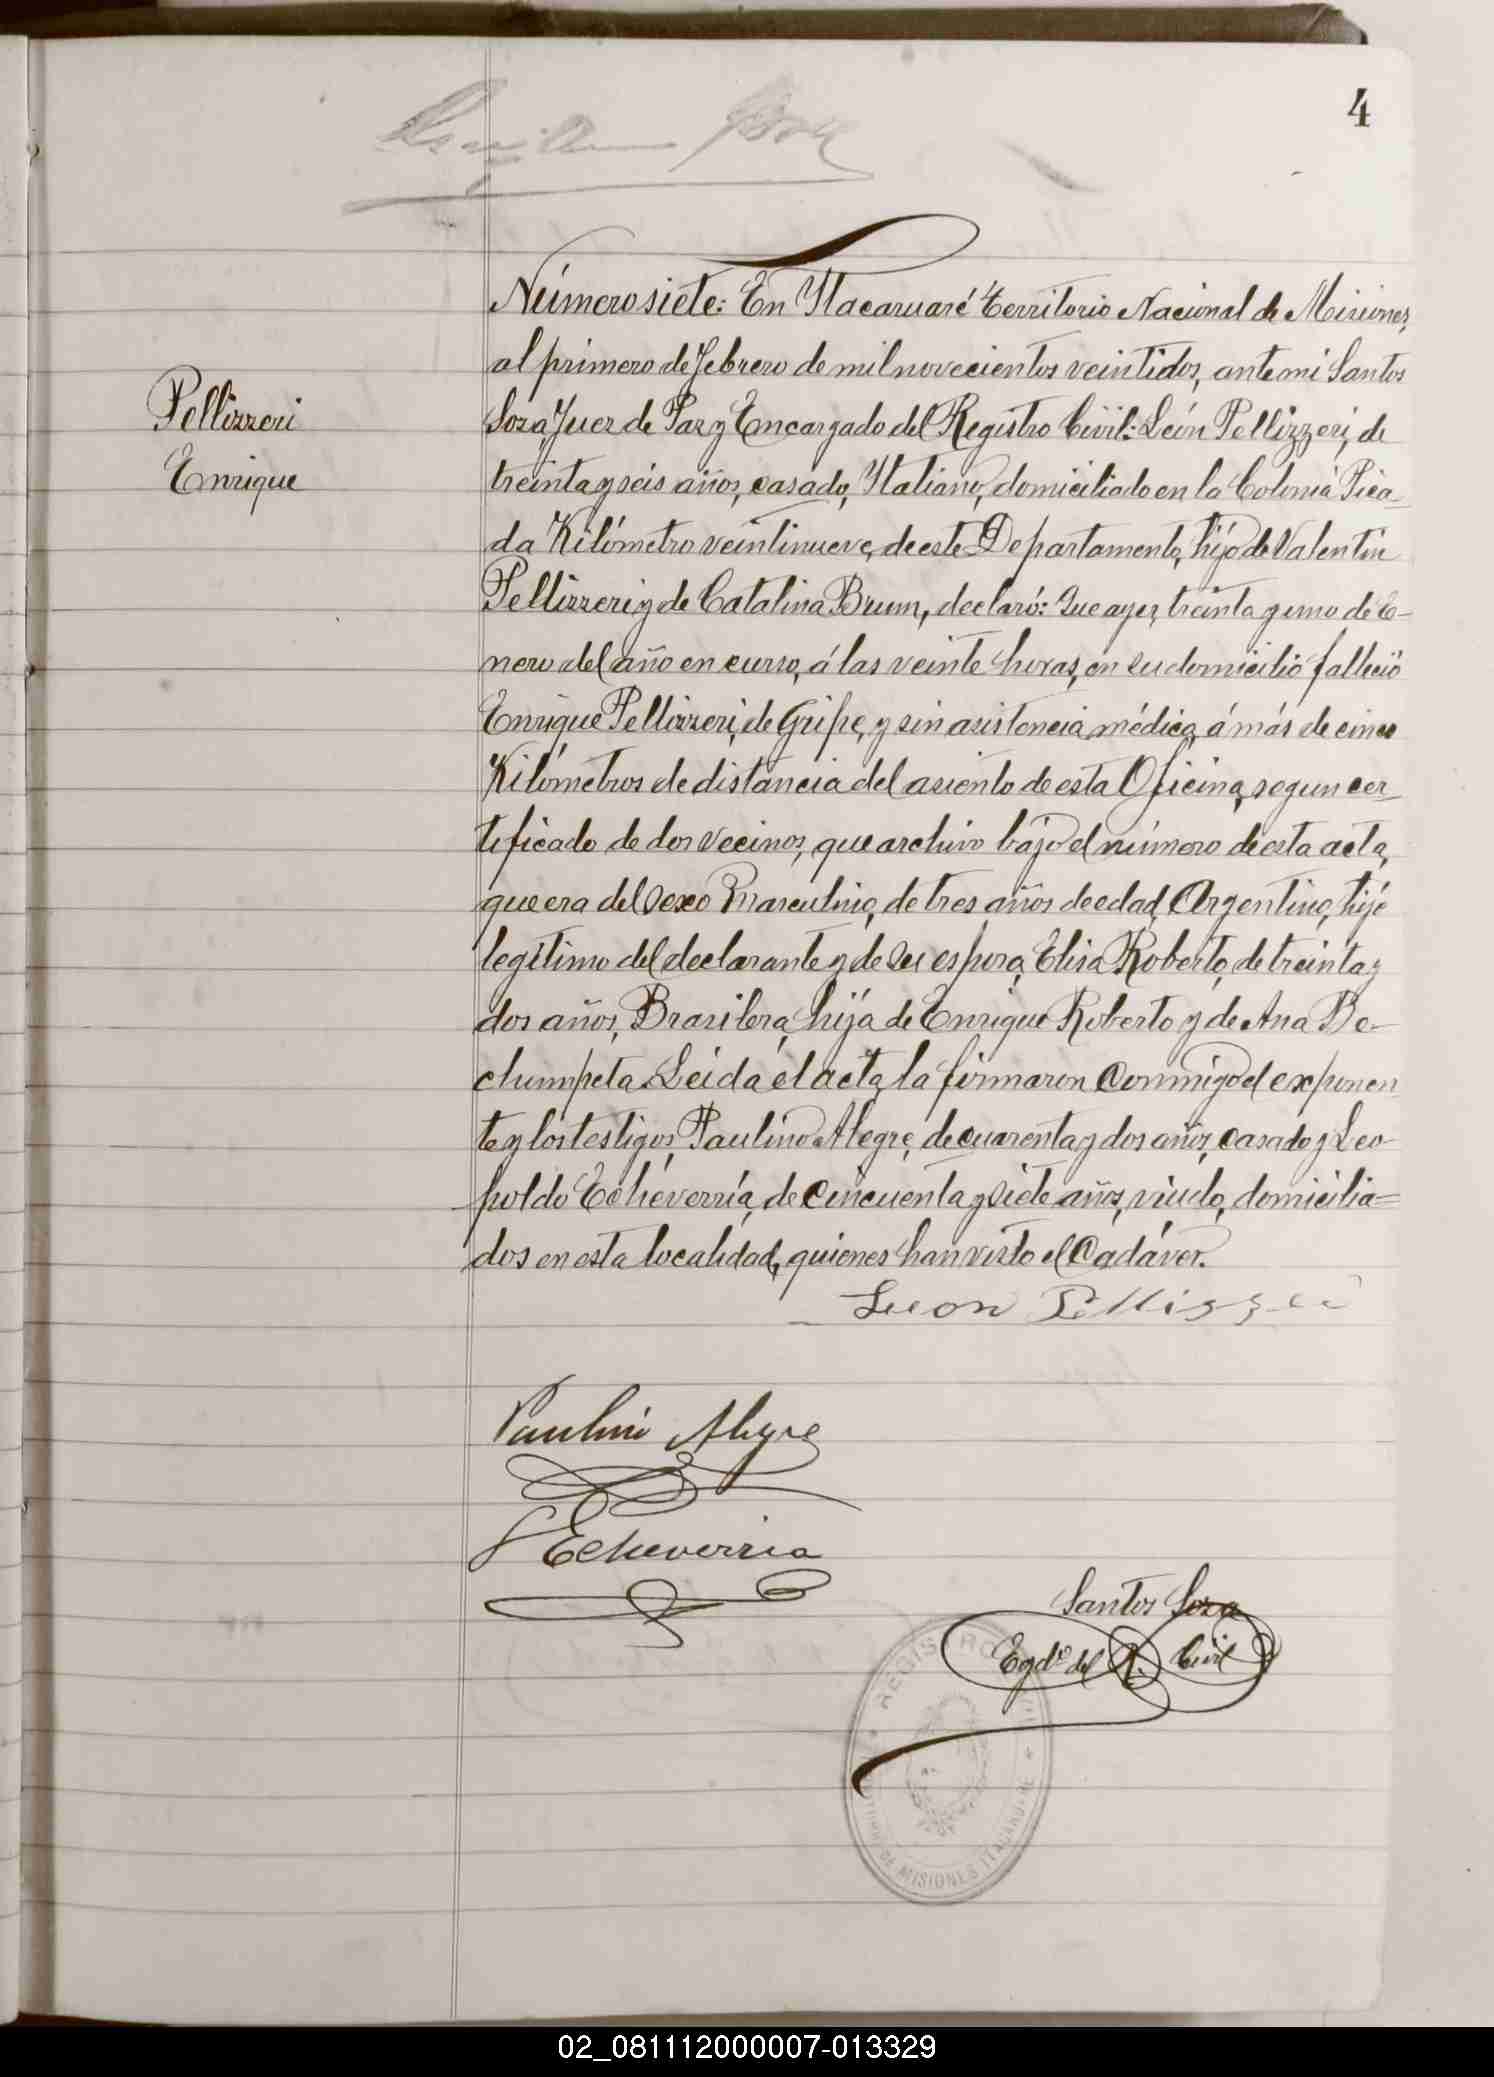 4
Número siete: En Ytacaruaré Territorio Nacional de Misiones,
al primero de Febrero de mil novecientos veintidos, ante mi Santos
Pellizzeri
Enrique
Soza, Juez de Paz y Encargado del Registro Civil: León Pellizzeri, de
treinta y seis años, casado, Ytaliano, domiciliado en la Colonia Pica-
da Kilómetro veintinueve, de este Departamento, hijo de Valentin
Pellizzeri y de Catalina Brum, declaró: Que ayer, treinta y uno de E-
nero del año en curso, á las veinte horas, en su domicilio falleció
Enrique Pellizzeri, de Gripe, y sin asistencia médica, á más de cinco
Kilómetros de distancia del asiento de esta Oficina, segun cer-
tificado de dos vecinos, que archivo bajo el número de esta acta,
que era del sexo Masculino, de tres años de edad, Argentino, hijo
legítimo del declarante y de su esposa, Elisa Roberto, de treinta y
dos años, Brasilera, hija de Enrique Roberto y de Ana Be-
chumpeta. Leida el acta, la firmaron conmigo el exponen
te y los testigos, Paulino Alegre, de cuarenta y dos años, casado y Leo-
poldo Echeverría, de cincuenta y siete años, viudo, domicilia=
dos en esta localidad, quienes han visto el Cadáver.
Leon Pellizzeri
Paulino Alegre
Echeverria
Santos Soza
Egdo del R. Civil
REGISTRO CIVIL
DE MISIONES ITACARUARE
02_081112000007-013329